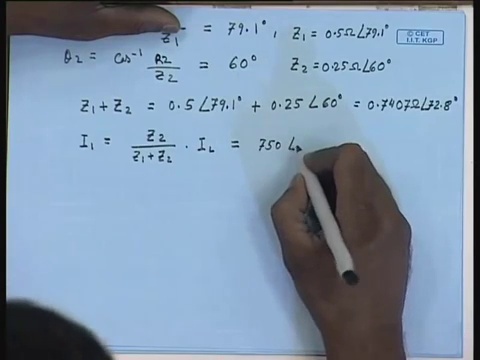 Z1 = 79.1°, Z1 = 0.5Ω∠79.1°
© CET
I.I.T. KGP
θ2 = cos⁻¹ R2/Z2 = 60° Z2 = 0.25Ω∠60°
Z1 + Z2 = 0.5∠79.1° + 0.25∠60° = 0.7407Ω∠72.8°
I1 = Z2/(Z1+Z2) · IL = 750∠